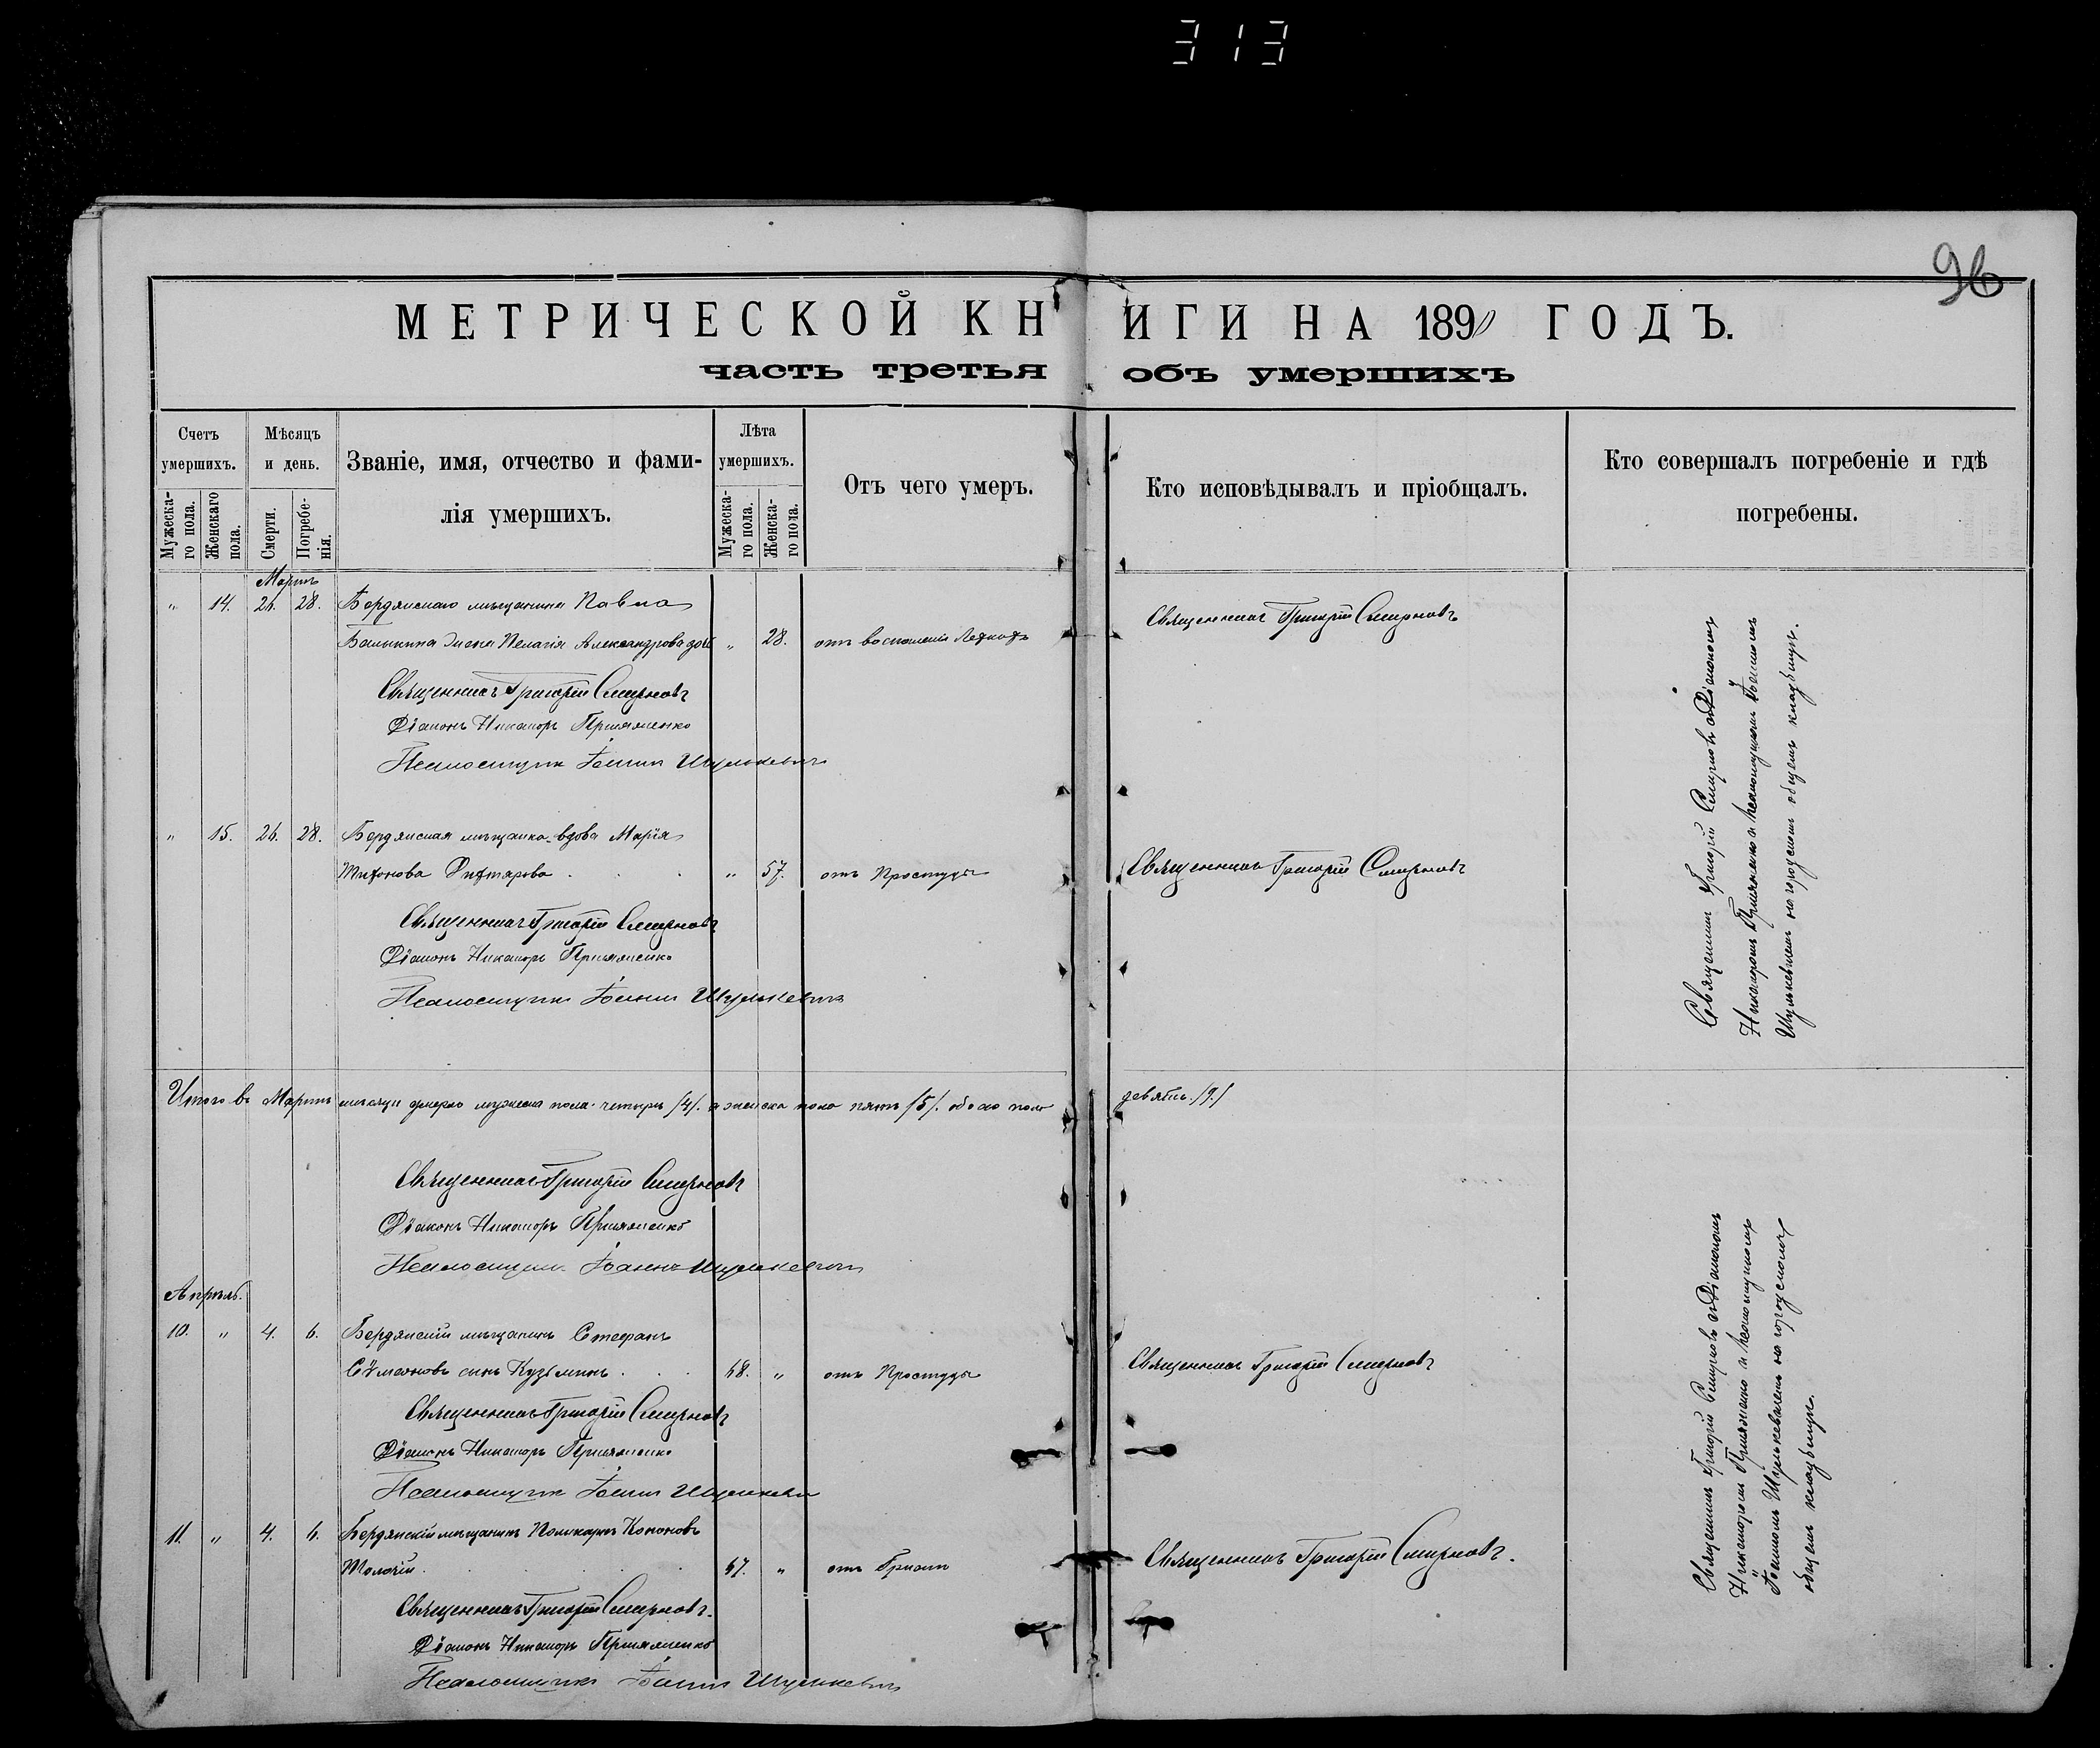 313
96
МЕТРИЧЕСКОЙ КНИГИ НА 1890 ГОДЪ.
часть третья объ умершихъ
Счетъ умершихъ.
Мужеска-го пола.
Женскаго пола.
Мѣсяцъ и день.
Смерти.
Погребе-нія.
Званіе, имя, отчество и фами-
лія умершихъ.
Лѣта умершихъ.
Мужеска-го пола.
Женска-го пола.
Отъ чего умеръ.
Кто исповѣдывалъ и пріобщалъ.
Кто совершалъ погребеніе и гдѣ
погребены.
Мартъ
" 14. 26. 28. Бердянскаго мѣщанина Павла
жена Пелагія Александрова " 28. отъ воспаленія Легкихъ
Священникъ Григорій Смирновъ
Священникъ Григорій Смирновъ
Діаконъ Никаноръ
Псаломщикъ Іоаннъ Шулькевичъ
" 15. 26. 28. Бердянская мѣщанка вдова Марія
Тихонова Дихтярова " 57. отъ Простуды
Священникъ Григорій Смирновъ
Священникъ Григорій Смирновъ
Діаконъ Никаноръ
Псаломщикъ Іоаннъ Шулькевичъ
Священникъ Григорій Смирновъ съ Діакономъ
Никаноромъ и псаломщикомъ Іоанномъ
Шулькевичемъ на городскомъ общемъ кладбищѣ.
Итого въ Мартѣ мѣсяцѣ умерло мужеска пола четыре /4/. а женска пола пять /5/. обоего пола девять. /9./
Священникъ Григорій Смирновъ
Діаконъ Никаноръ
Псаломщикъ Іоаннъ Шулькевичъ
Апрѣль.
10. " 4. 6. Бердянскій мѣщанинъ Стефанъ
Сѵмеоновъ сынъ Кузьминъ 48. " отъ Простуды
Священникъ Григорій Смирновъ
Священникъ Григорій Смирновъ
Діаконъ Никаноръ
Псаломщикъ Іоаннъ Шулькевичъ
11. " 4. 6. Бердянскій мѣщанинъ Поликарпъ Кононовъ
Толочій 47. " отъ
Священникъ Григорій Смирновъ.
Священникъ Григорій Смирновъ.
Діаконъ Никаноръ
Псаломщикъ Іоаннъ Шулькевичъ
Священникъ Григорій Смирновъ съ Діакономъ
Никаноромъ и псаломщикомъ
Іоанномъ Шулькевичемъ на городскомъ
общемъ кладбищѣ.